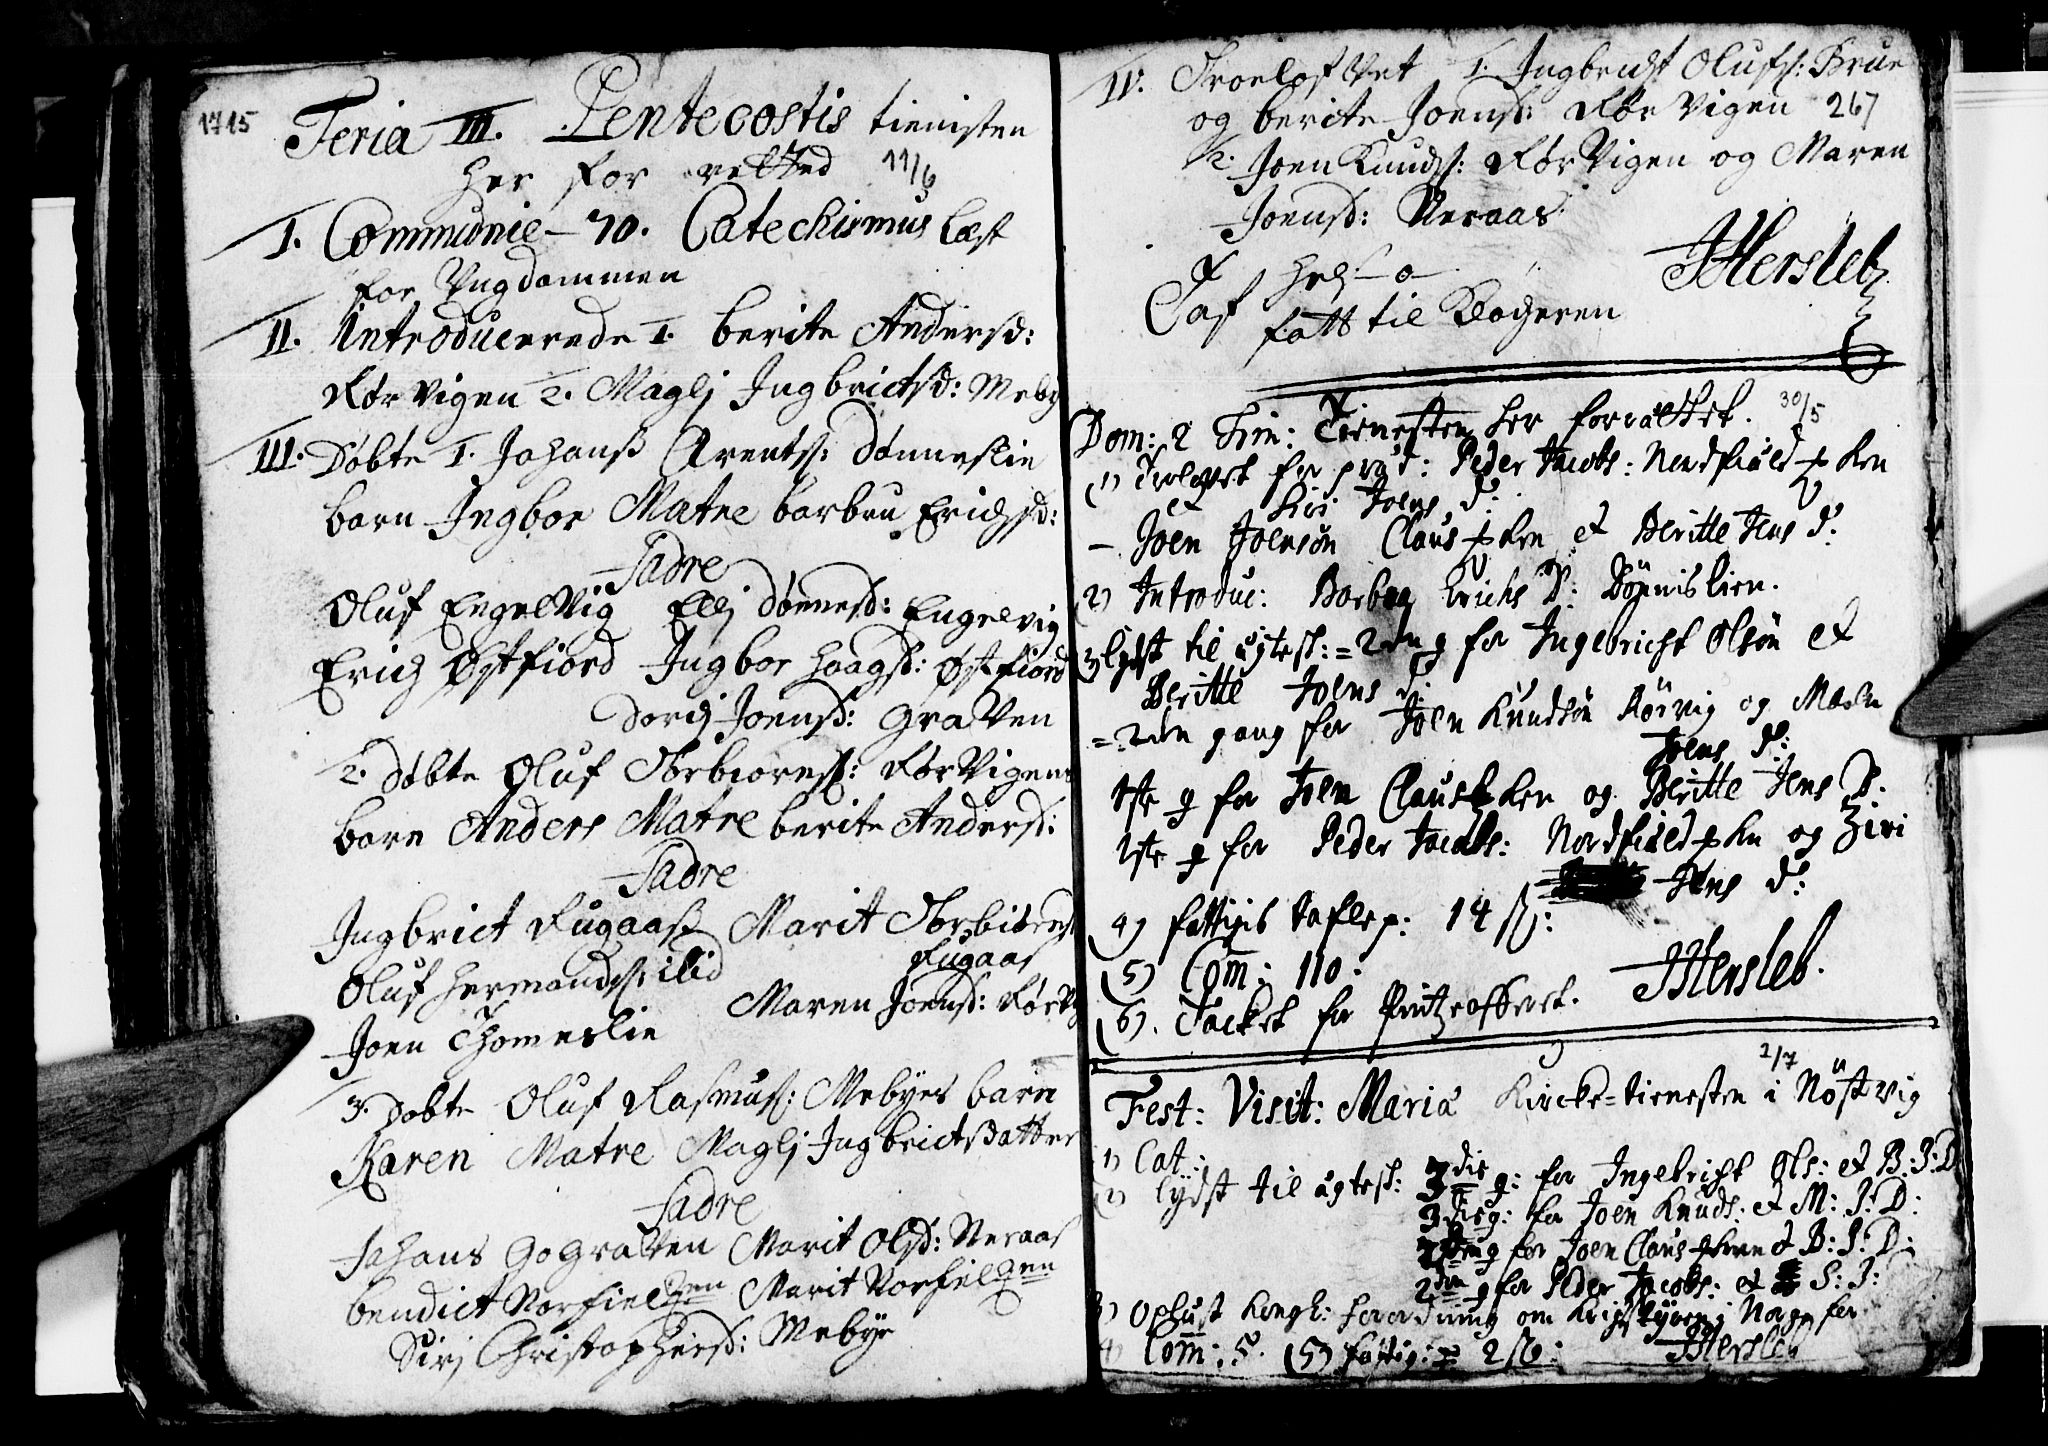 1715
Feria III. Pentecostis tienisten
her for retted 11/6
I. Communie - 70. Catechismus læst
for Ungdommen
II. Introducerede 1. berite Andersd:
Rør Vigen 2. Maglj Ingbrictsd: Meby
III. Døbte 1. Johans Arents: Dønneslie
barn Ingbor Matre barbru Erichsd:
Fadre
Oluf Engelvig Ellj Dønnesd: Engelvig
Erich Østfiord Ingbor Haagsd: Østfiord
Dordj Joensd: Graven
2. Døbte Oluf Torbiorns: Rør Vigens
barn Anders Matre berite Andersd:
Fadre
Ingbrict Fugaas Marit Torbiorns
Fugaas
Oluf Hermands: Lid
Maren Joensd: Rørv
Joen Thomeslie
3. Døbte Oluf Rasmus: Mebyes barn
Karen Matre Maglj Ingbrictsdatter
Fadre
Johans Gograven Marit Olsd: Aeraas
bendict Norfielzen Marit Norfielzen
Sirj Christophersd: Mebye
IV. Troelofvet 1. Ingbricht Olufs: Brue
og berite Joensd: Rør Vigen 267
2. Joen Knuds: Rør Vigen og Maren
Joensd: Aeraas
Taf
fatt til Klocheren
JHersleb
Dom: 2 Trin: Tienesten her forrættet. 30/5
(1) Trolovet for præd: Peder Jacobs: Nordfield
et Siri Joens d:
- Joen Joensøn Claus et Beritte Jens d:
(2) Introduc: Barbra Erichs D: Dönnislien.
(3) lyst til ægtesk: = 2den g for Ingebricht Olsøn et
Beritte Joens d:
= 2den gang for Joen Knudsøn Rörvig og Maren
Joens d:
1ste g for Joen Claus og Beritte Jens D.
1ste g for Peder Jacobs: Nordfield og Ziri
Jens d:
4) fattigis tafle p: 14 ß:
(5) Com: 110.
(6). Tacket for Printz offeret. JHersleb.
Fest: Visit: Mariæ Kircke-tienesten i Nöstvig 2/7
1) Cat:
(2) lydst til ægtesk: 3die g: for Ingebricht Ols: et B: J: D
3die g: for Joen Knuds: et M: J: D:
2den g for Joen Claus et B: J: D:
2den g for Peder Jacobs: et S: J:
3) Oplæst Kongl: forordning om i Norge for
4) Com: 5. (5) fattig: 2 ß: JHersleb